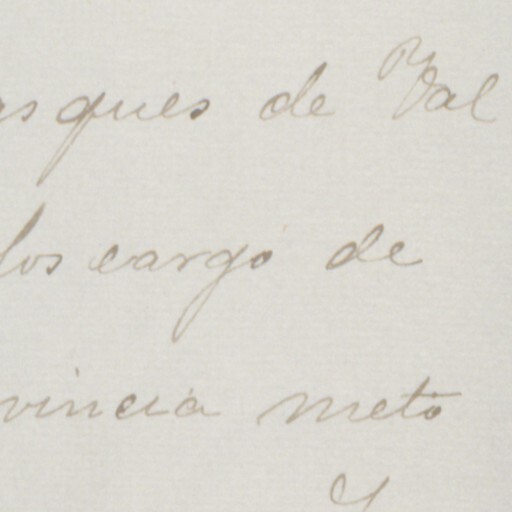 asques de Val
los cargo de
vincia nieto
y